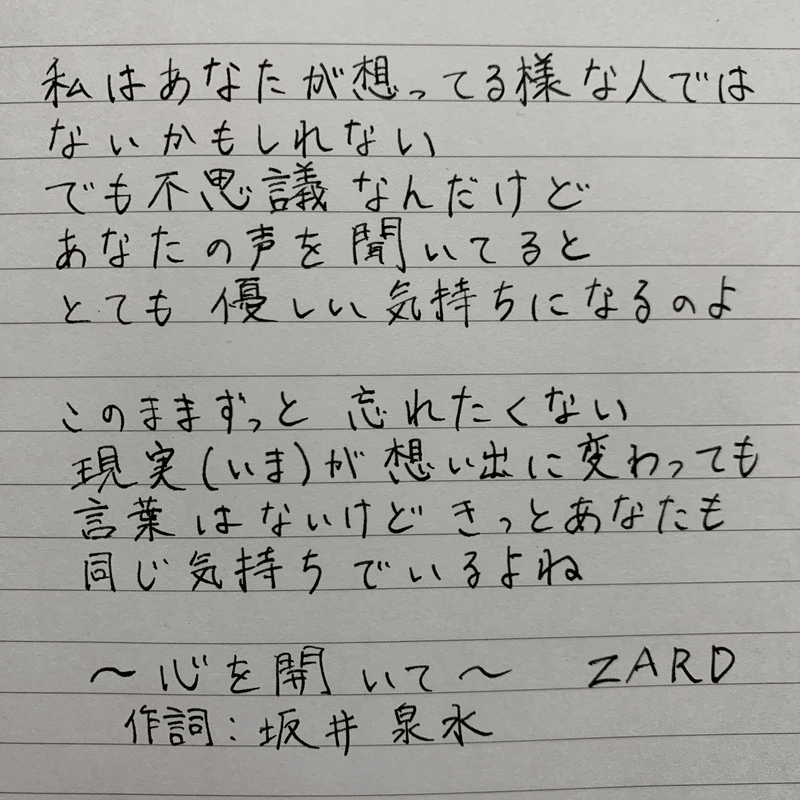 私はあなたが想ってる様な人では
ないかもしれない
でも不思議なんだけど
あなたの声を聞いてると
とても優しい気持ちになるのよ
このままずっと 忘れたくない
現実(いま)が想い出に変わっても
言葉はないけど きっとあなたも
同じ気持ちでいるよね
～心を開いて～ ZARD
作詞：坂井泉水